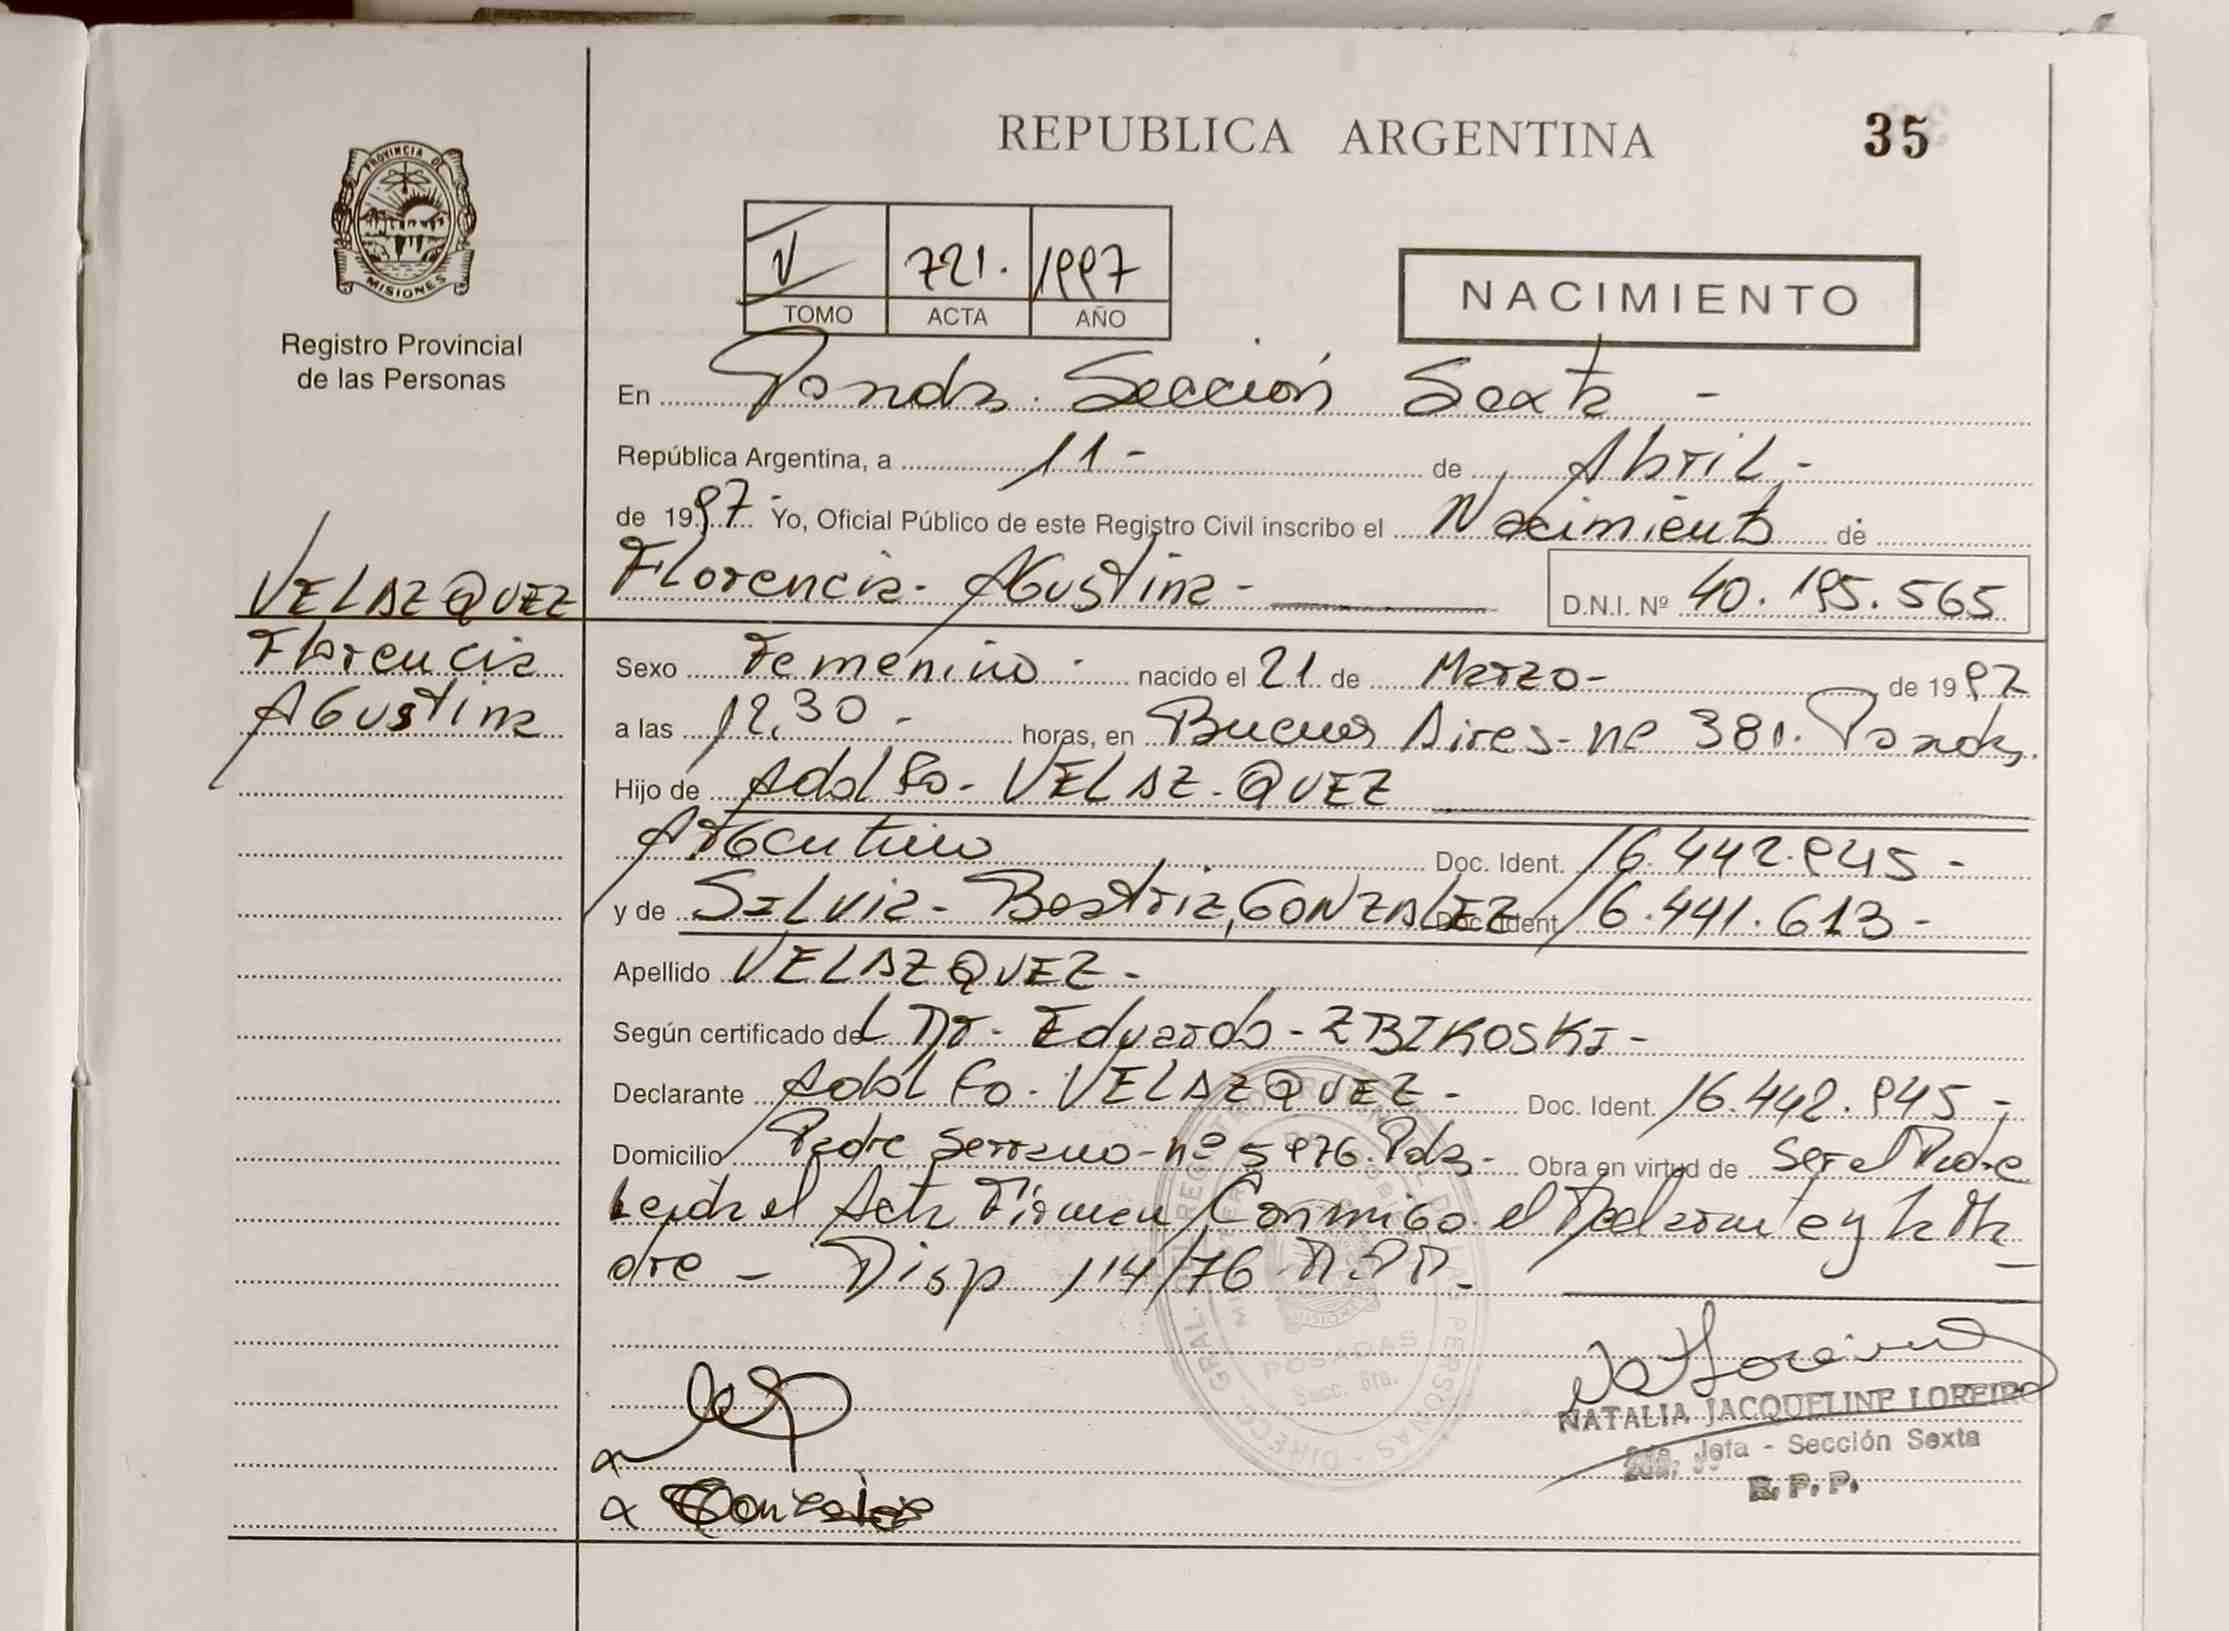 REPUBLICA ARGENTINA
35
PROVINCIA DE
MISIONES
Registro Provincial
de las Personas
V 721. 1997
TOMO ACTA AÑO
NACIMIENTO
En Posadas. Sección Sexta -
República Argentina, a 11 - de Abril -
de 1997. Yo, Oficial Público de este Registro Civil inscribo el Nacimiento de
Florencia - Agustina - D.N.I. Nº 40.195.565
VELAZQUEZ
Florencia
Agustina
Sexo Femenino - nacido el 21 de Marzo - de 1997
a las 12,30 - horas, en Buenos Aires - nº 381. Posadas.
Hijo de Adolfo - VELAZ-QUEZ
Argentino Doc. Ident. 16.442.945 -
y de Silvia - Beatriz, GONZALEZ Doc. Ident. 16.441.613 -
Apellido VELAZQUEZ -
Según certificado del Dr - Eduardo - ZBIKOSKI -
Declarante Adolfo - VELAZQUEZ - Doc. Ident. 16.442.945 -
Domicilio Padre Serrano - nº 5976. Pdas - Obra en virtud de ser el Padre
Leida el Acta Firman Conmigo el Declarante y la Ma
dre - Disp 114/76
DIRECC. GRAL. REGISTRO PROVINCIAL DE LAS PERSONAS
POSADAS
Secc. 6ta.
Gonzalez
NATALIA JACQUELINE LOREIRO
2da. Jefa - Sección Sexta
R. P. P.